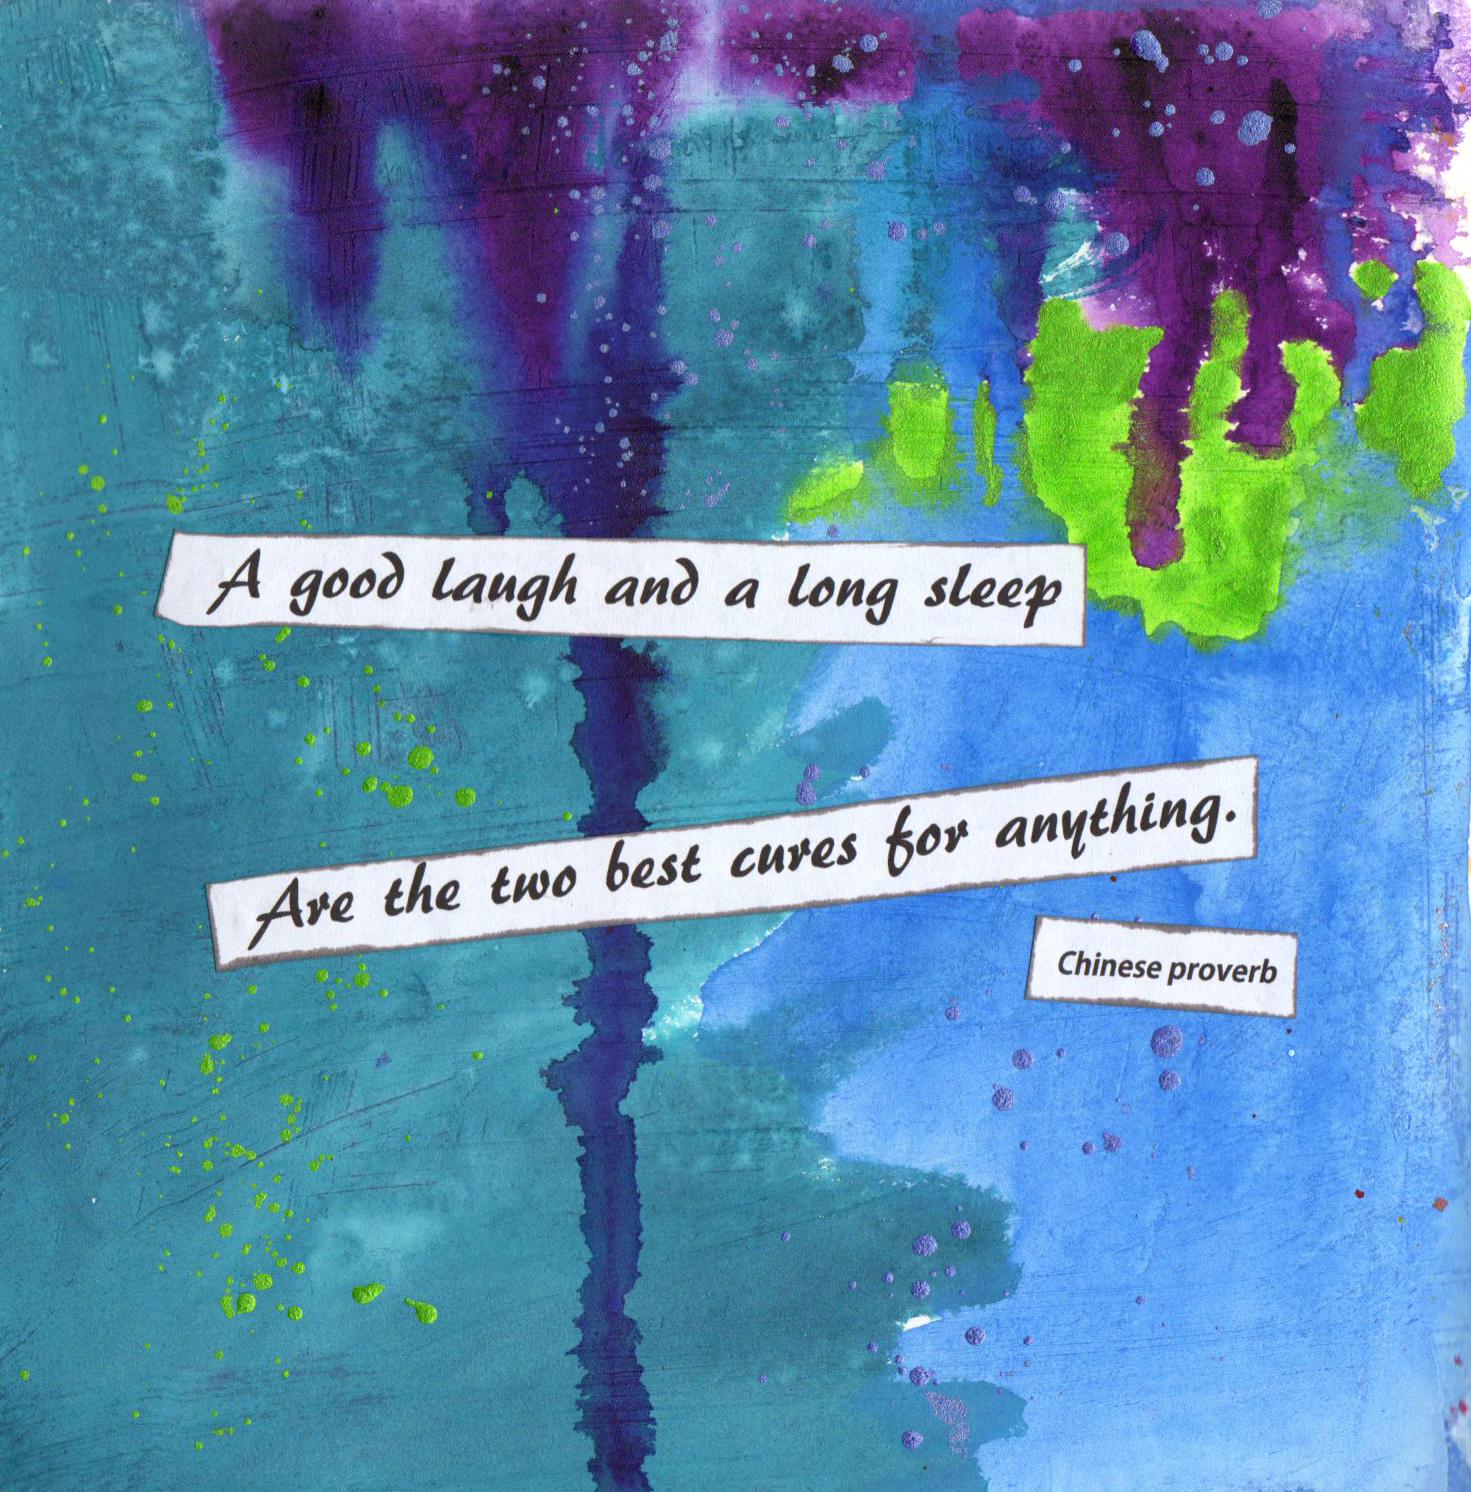 A good laugh and a long sleep
Are the two best cures for anything.
Chinese proverb